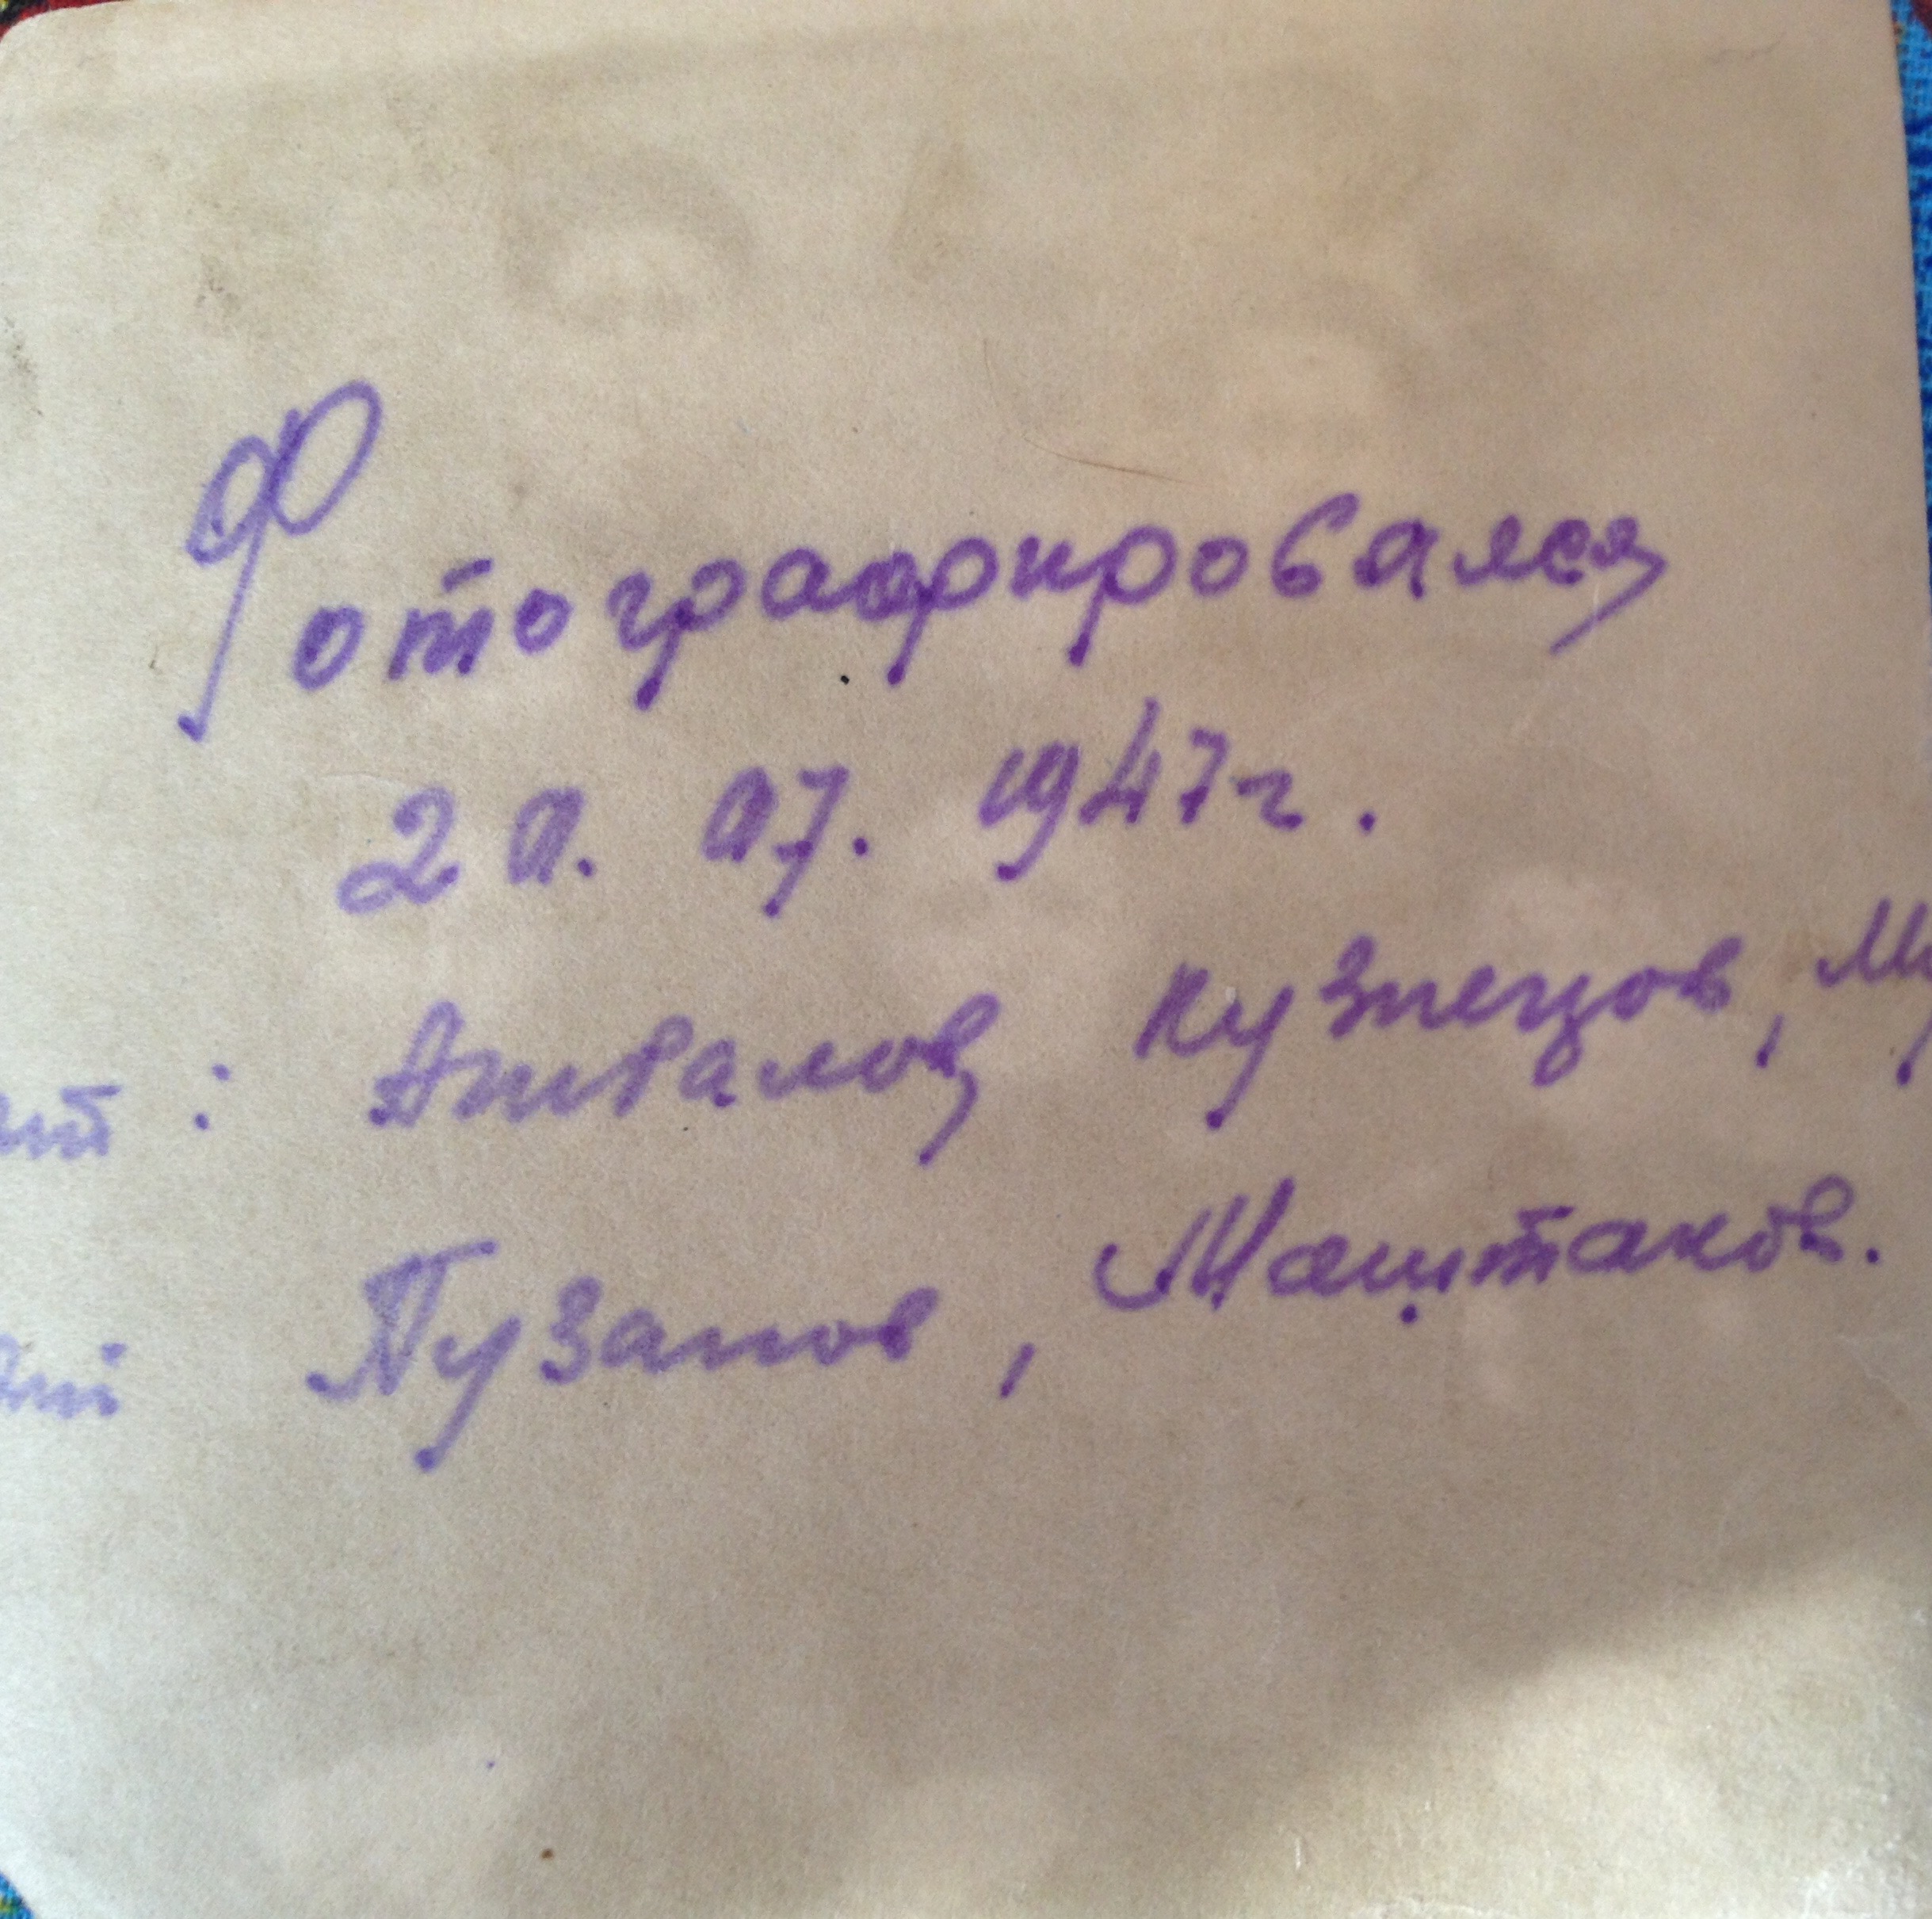 Фотографировался
20. 07. 1947г.
Кузнецов,
Пузанов, Маштаков.